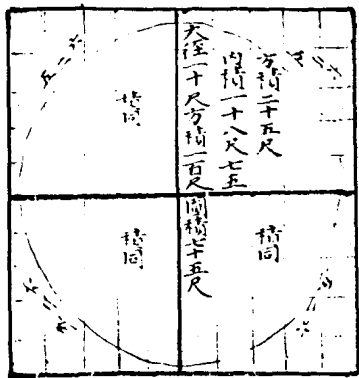 方積二十五尺
内積一十八尺七五
大徑一十尺方積一百尺
圓積七十五尺
積同
積同
積同